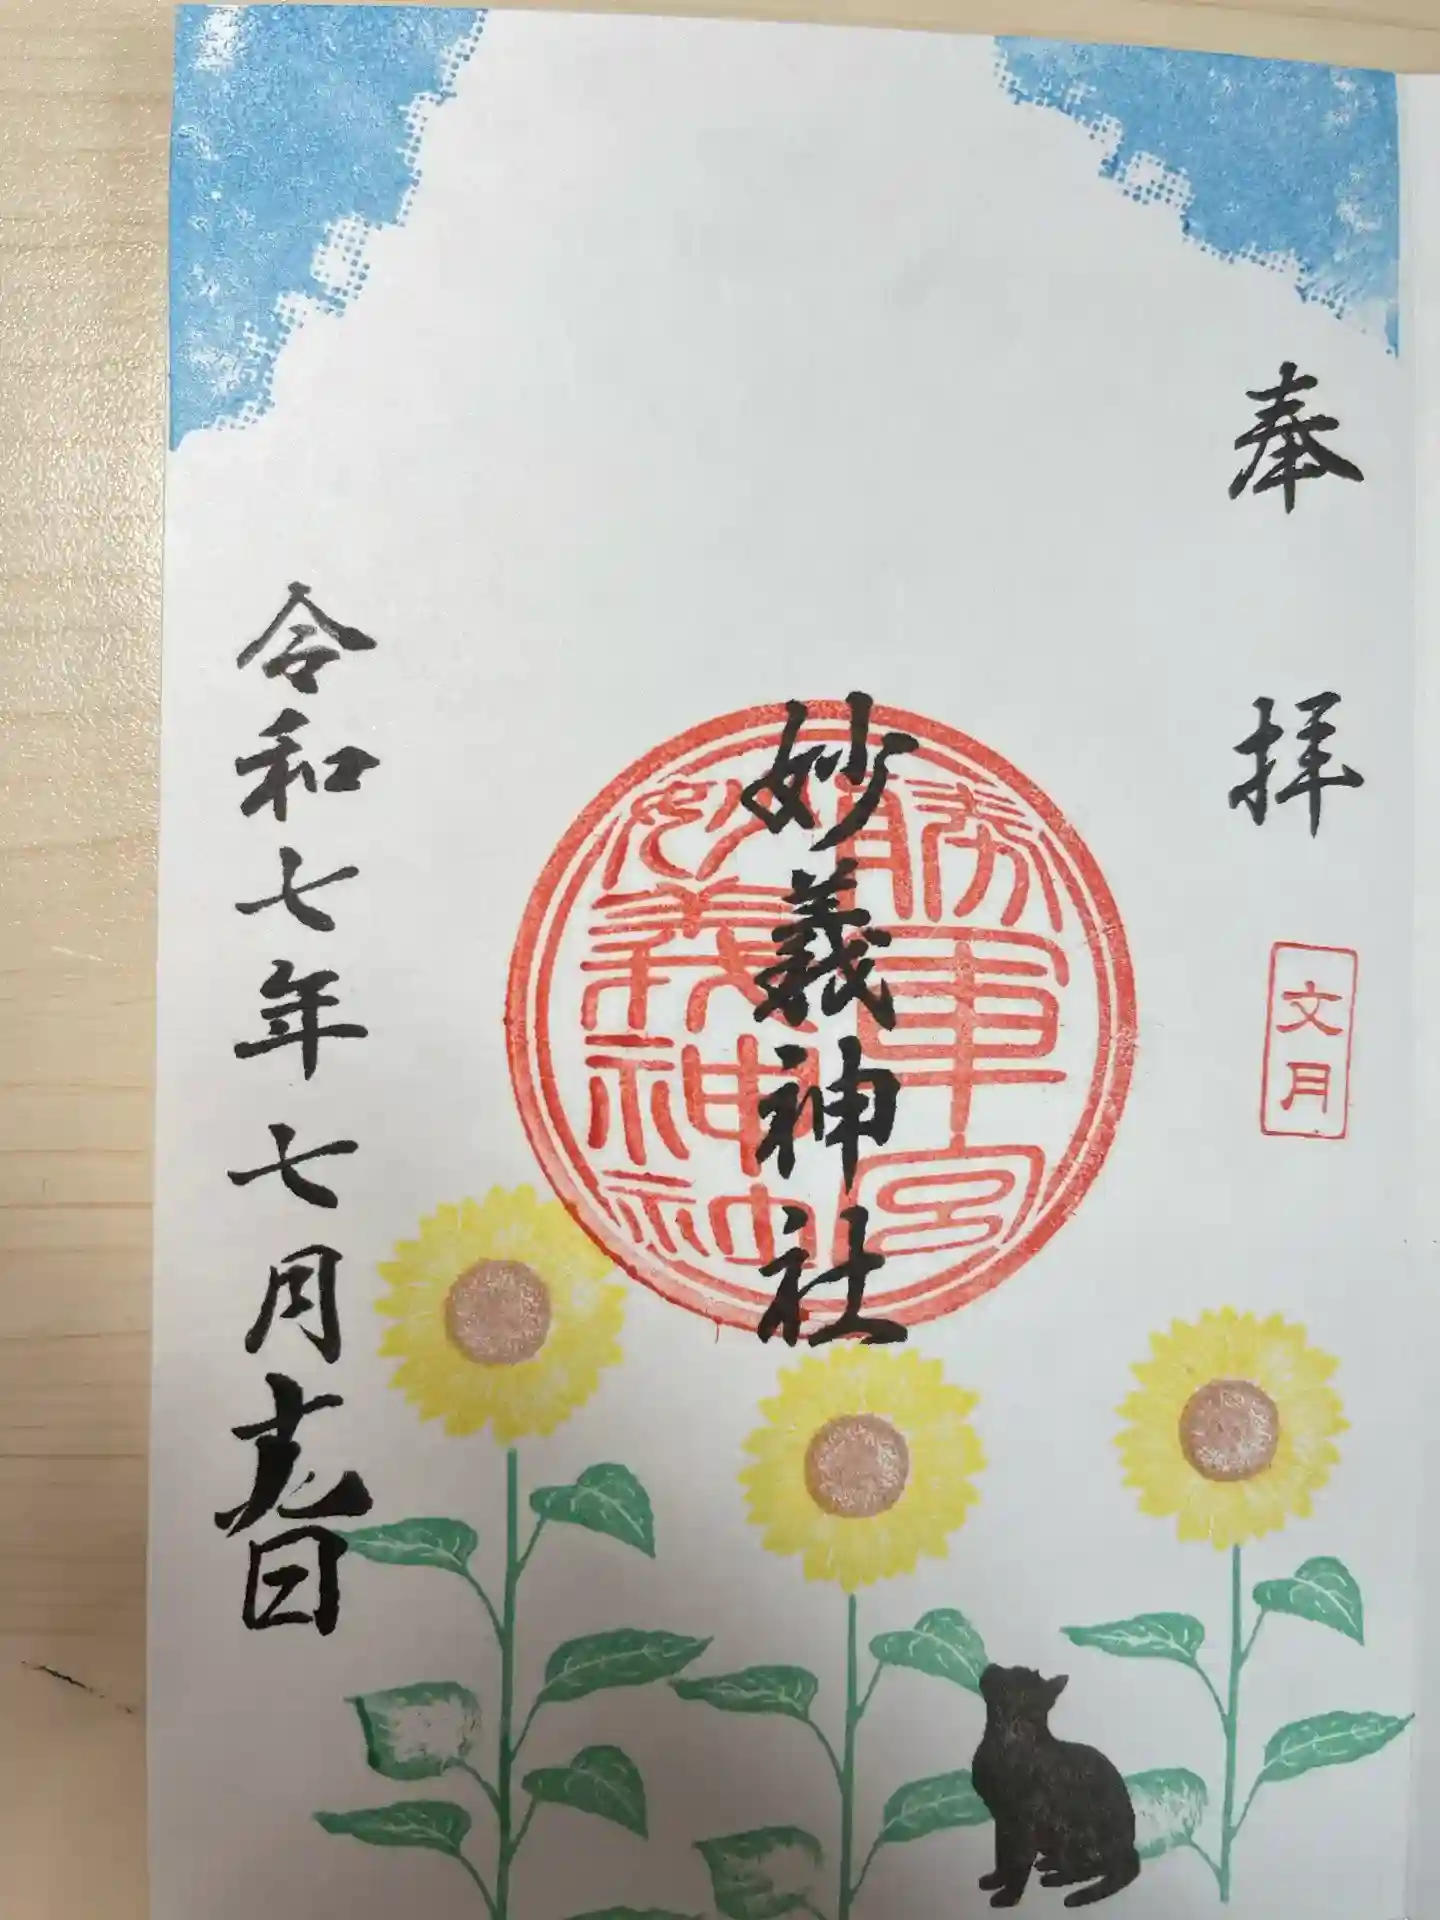 奉拝
文月
妙義神社
勝軍宮
妙義神社
令和七年七月十九日